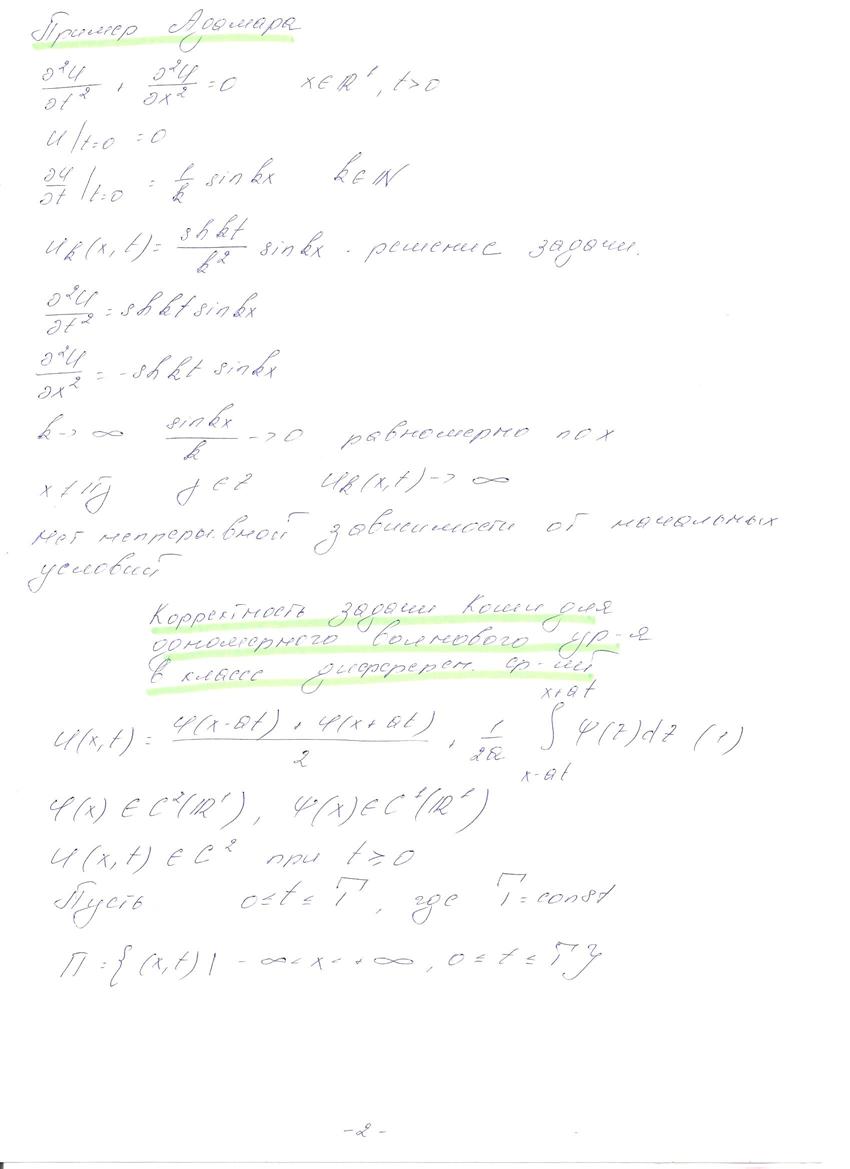 Пример Адамара
∂²U/∂t² + ∂²U/∂x² = 0    x ∈ ℝ¹, t > 0
U|t=0 = 0
∂U/∂t|t=0 = 1/k sin kx    k ∈ ℕ
Uk(x,t) = sh kt / k² sin kx - решение задачи.
∂²U/∂t² = sh kt sin kx
∂²U/∂x² = - sh kt sin kx
k -> ∞    sin kx / k -> 0    равномерно по x
x ≠ πj    j ∈ Z    Uk(x,t) -> ∞
нет непрерывной зависимости от начальных
условий
Корректность задачи Коши для
одномерного волнового ур-я
в классе дифферен. ф-ий
U(x,t) = (φ(x-at) + φ(x+at))/2 + 1/2a ∫_{x-at}^{x+at} Ψ(z)dz (1)
φ(x) ∈ C²(ℝ¹), Ψ(x) ∈ C¹(ℝ¹)
U(x,t) ∈ C² при t ≥ 0
Пусть 0 ≤ t ≤ T, где T = const
П = {(x,t) | -∞ < x < +∞, 0 ≤ t ≤ T}
-2-